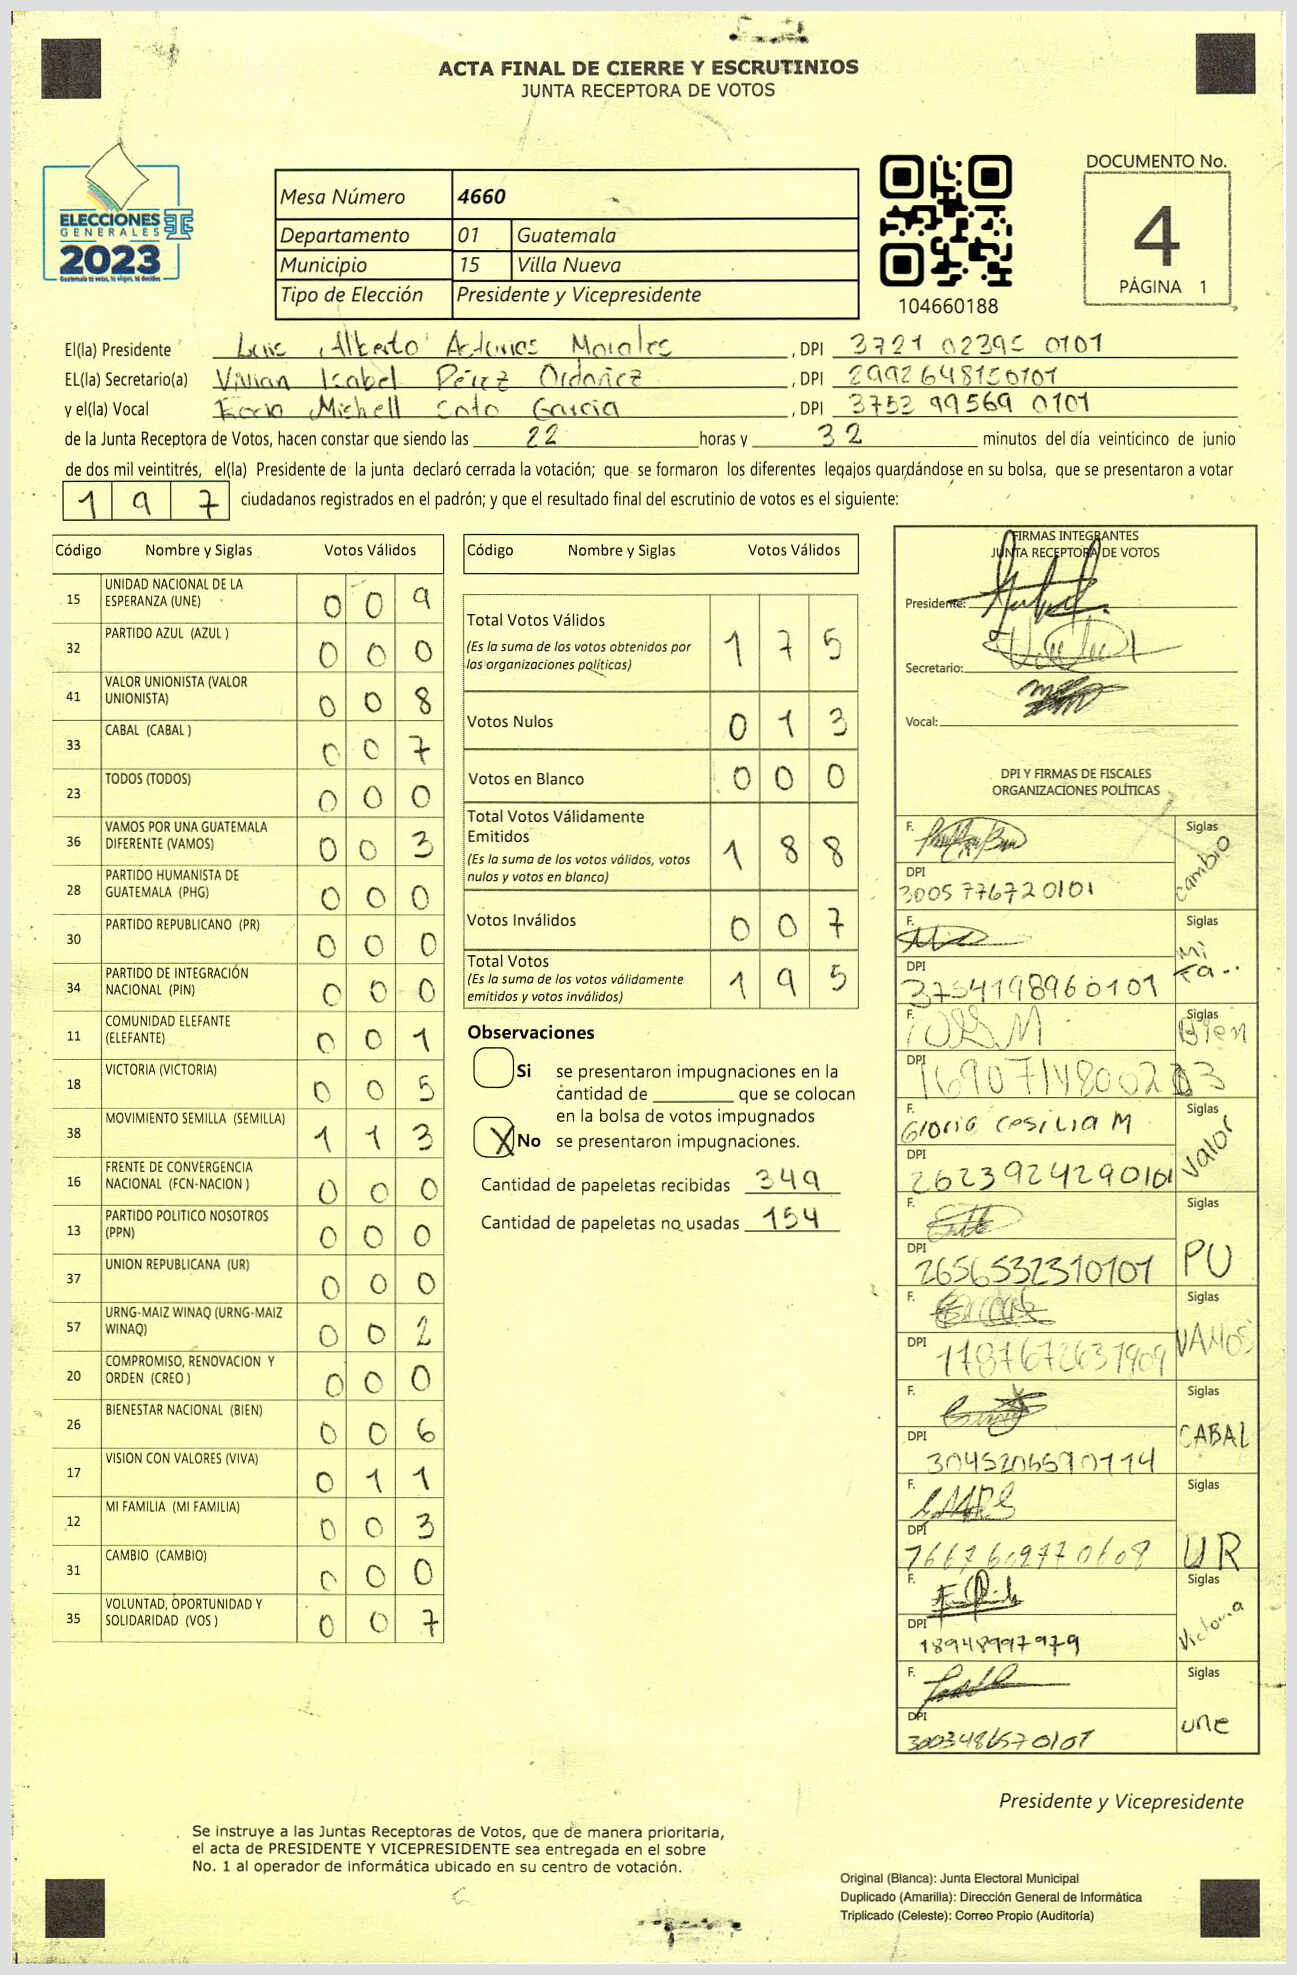 ACTA FINAL DE CIERRE Y ESCRUTINIOS
JUNTA RECEPTORA DE VOTOS
ELECCIONES
GENERALES
2023
Mesa Número 4660
Departamento 01 Guatemala
Municipio 15 Villa Nueva
Tipo de Elección Presidente y Vicepresidente
104660188
DOCUMENTO No.
4
PÁGINA 1
El(la) Presidente Luis Alberto Morales , DPI 0101
EL(la) Secretario(a) Vivian Isabel Pérez Ordoñez , DPI 2992648150101
y el(la) Vocal Michell Soto Garcia , DPI 3753 99569 0101
de la Junta Receptora de Votos, hacen constar que siendo las 22 horas y 32 minutos del día veinticinco de junio
de dos mil veintitrés, el(la) Presidente de la junta declaró cerrada la votación; que se formaron los diferentes legajos guardándose en su bolsa, que se presentaron a votar
197 ciudadanos registrados en el padrón; y que el resultado final del escrutinio de votos es el siguiente:
Código Nombre y Siglas Votos Válidos
15 UNIDAD NACIONAL DE LA ESPERANZA (UNE) 0 0 9
32 PARTIDO AZUL (AZUL ) 0 0 0
41 VALOR UNIONISTA (VALOR UNIONISTA) 0 0 8
33 CABAL (CABAL ) 0 0 7
23 TODOS (TODOS) 0 0 0
36 VAMOS POR UNA GUATEMALA DIFERENTE (VAMOS) 0 0 3
28 PARTIDO HUMANISTA DE GUATEMALA (PHG) 0 0 0
30 PARTIDO REPUBLICANO (PR) 0 0 0
34 PARTIDO DE INTEGRACIÓN NACIONAL (PIN) 0 0 0
11 COMUNIDAD ELEFANTE (ELEFANTE) 0 0 1
18 VICTORIA (VICTORIA) 0 0 5
38 MOVIMIENTO SEMILLA (SEMILLA) 1 1 3
16 FRENTE DE CONVERGENCIA NACIONAL (FCN-NACION ) 0 0 0
13 PARTIDO POLITICO NOSOTROS (PPN) 0 0 0
37 UNION REPUBLICANA (UR) 0 0 0
57 URNG-MAIZ WINAQ (URNG-MAIZ WINAQ) 0 0 2
20 COMPROMISO, RENOVACION Y ORDEN (CREO ) 0 0 0
26 BIENESTAR NACIONAL (BIEN) 0 0 6
17 VISION CON VALORES (VIVA) 0 1 1
12 MI FAMILIA (MI FAMILIA) 0 0 3
31 CAMBIO (CAMBIO) 0 0 0
35 VOLUNTAD, OPORTUNIDAD Y SOLIDARIDAD (VOS ) 0 0 7
Código Nombre y Siglas Votos Válidos
Total Votos Válidos 1 7 5
(Es la suma de los votos obtenidos por
las organizaciones políticas)
Votos Nulos 0 1 3
Votos en Blanco 0 0 0
Total Votos Válidamente
Emitidos 1 8 8
(Es la suma de los votos válidos, votos
nulos y votos en blanco)
Votos Inválidos 0 0 7
Total Votos 1 9 5
(Es la suma de los votos válidamente
emitidos y votos inválidos)
Observaciones
Si se presentaron impugnaciones en la
cantidad de ________ que se colocan
en la bolsa de votos impugnados
X No se presentaron impugnaciones.
Cantidad de papeletas recibidas 349
Cantidad de papeletas no usadas 154
FIRMAS INTEGRANTES
JUNTA RECEPTORA DE VOTOS
Presidente:
Secretario:
Vocal:
DPI Y FIRMAS DE FISCALES
ORGANIZACIONES POLÍTICAS
F. Siglas cambio
DPI 3005 77672 0101
F. Siglas Mi Fa..
DPI 3754198960101
F. Siglas Bien
DPI
F. Gloria Cesilia M Siglas Valor
DPI 2623924290101
F. Siglas PU
DPI 2656532310101
F. Siglas VAMOS
DPI 1787672631909
F. Siglas CABAL
DPI
F. Siglas UR
DPI
F. Siglas Victoria
DPI
F. Siglas une
DPI
Presidente y Vicepresidente
Se instruye a las Juntas Receptoras de Votos, que de manera prioritaria,
el acta de PRESIDENTE Y VICEPRESIDENTE sea entregada en el sobre
No. 1 al operador de informática ubicado en su centro de votación.
Original (Blanca): Junta Electoral Municipal
Duplicado (Amarilla): Dirección General de Informática
Triplicado (Celeste): Correo Propio (Auditoría)